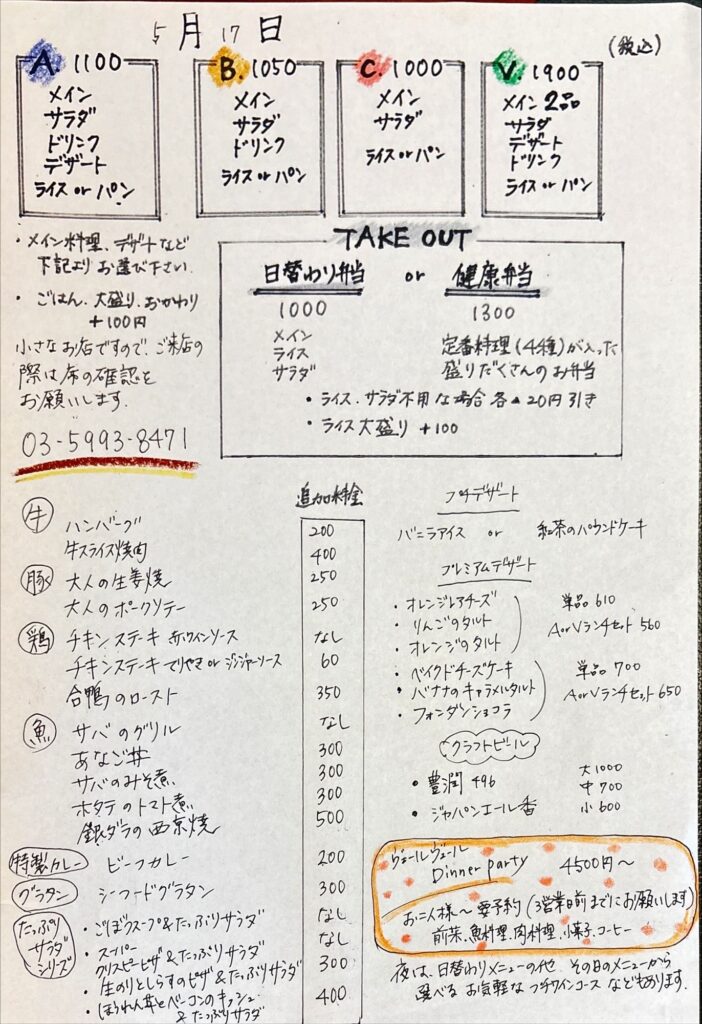 5月17日
(税込)
A. 1100
メイン
サラダ
ドリンク
デザート
ライス or パン
B. 1050
メイン
サラダ
ドリンク
ライス or パン
C. 1000
メイン
サラダ
ライス or パン
V. 1900
メイン 2品
サラダ
デザート
ドリンク
ライス or パン
・メイン料理、デザートなど
下記よりお選び下さい。
・ごはん、大盛り、おかわり
+100円
小さなお店ですので、ご来店の
際は席の確認を
お願いします。
03-5993-8471
TAKE OUT
日替わり弁当 or 健康弁当
1000
メイン
ライス
サラダ
1300
定番料理(4種)が入った
盛りだくさんのお弁当
・ライス、サラダ不用な場合 各▲20円引き
・ライス大盛り +100
追加料金
牛 ハンバーグ 200
牛スライス焼肉 400
豚 大人の生姜焼 250
大人のポークソテー 250
鶏 チキンステーキ 赤ワインソース なし
チキンステーキ てりやき or ジンジャーソース 60
合鴨のロースト 350
魚 サバのグリル なし
あなご丼 300
サバのみそ煮 300
ホタテのトマト煮 300
銀ダラの西京焼 500
特製カレー ビーフカレー 200
グラタン シーフードグラタン 300
たっぷりサラダシリーズ
・ごぼうスープ&たっぷりサラダ なし
・スーパークリスピーピザ&たっぷりサラダ なし
・生のりとしらすのピザ&たっぷりサラダ 300
・ほうれん草とベーコンのキッシュ
&たっぷりサラダ 400
プチデザート
バニラアイス or 紅茶のパウンドケーキ
プレミアムデザート
・オレンジレアチーズ
・りんごのタルト
・オレンジのタルト
単品 610
A or Vランチセット 560
・ベイクドチーズケーキ
・バナナのキャラメルタルト
・フォンダンショコラ
単品 700
A or Vランチセット 650
クラフトビール
・豊潤 496
・ジャパンエール香
大 1000
中 700
小 600
ヴェールヴェール
Dinner party 4500円〜
お二人様〜 要予約 (3営業日前までにお願いします)
前菜、魚料理、肉料理、小菓子、コーヒー
夜は、日替わりメニューの他、その日のメニューから
選べる お気軽な プチワインコース などもあります。